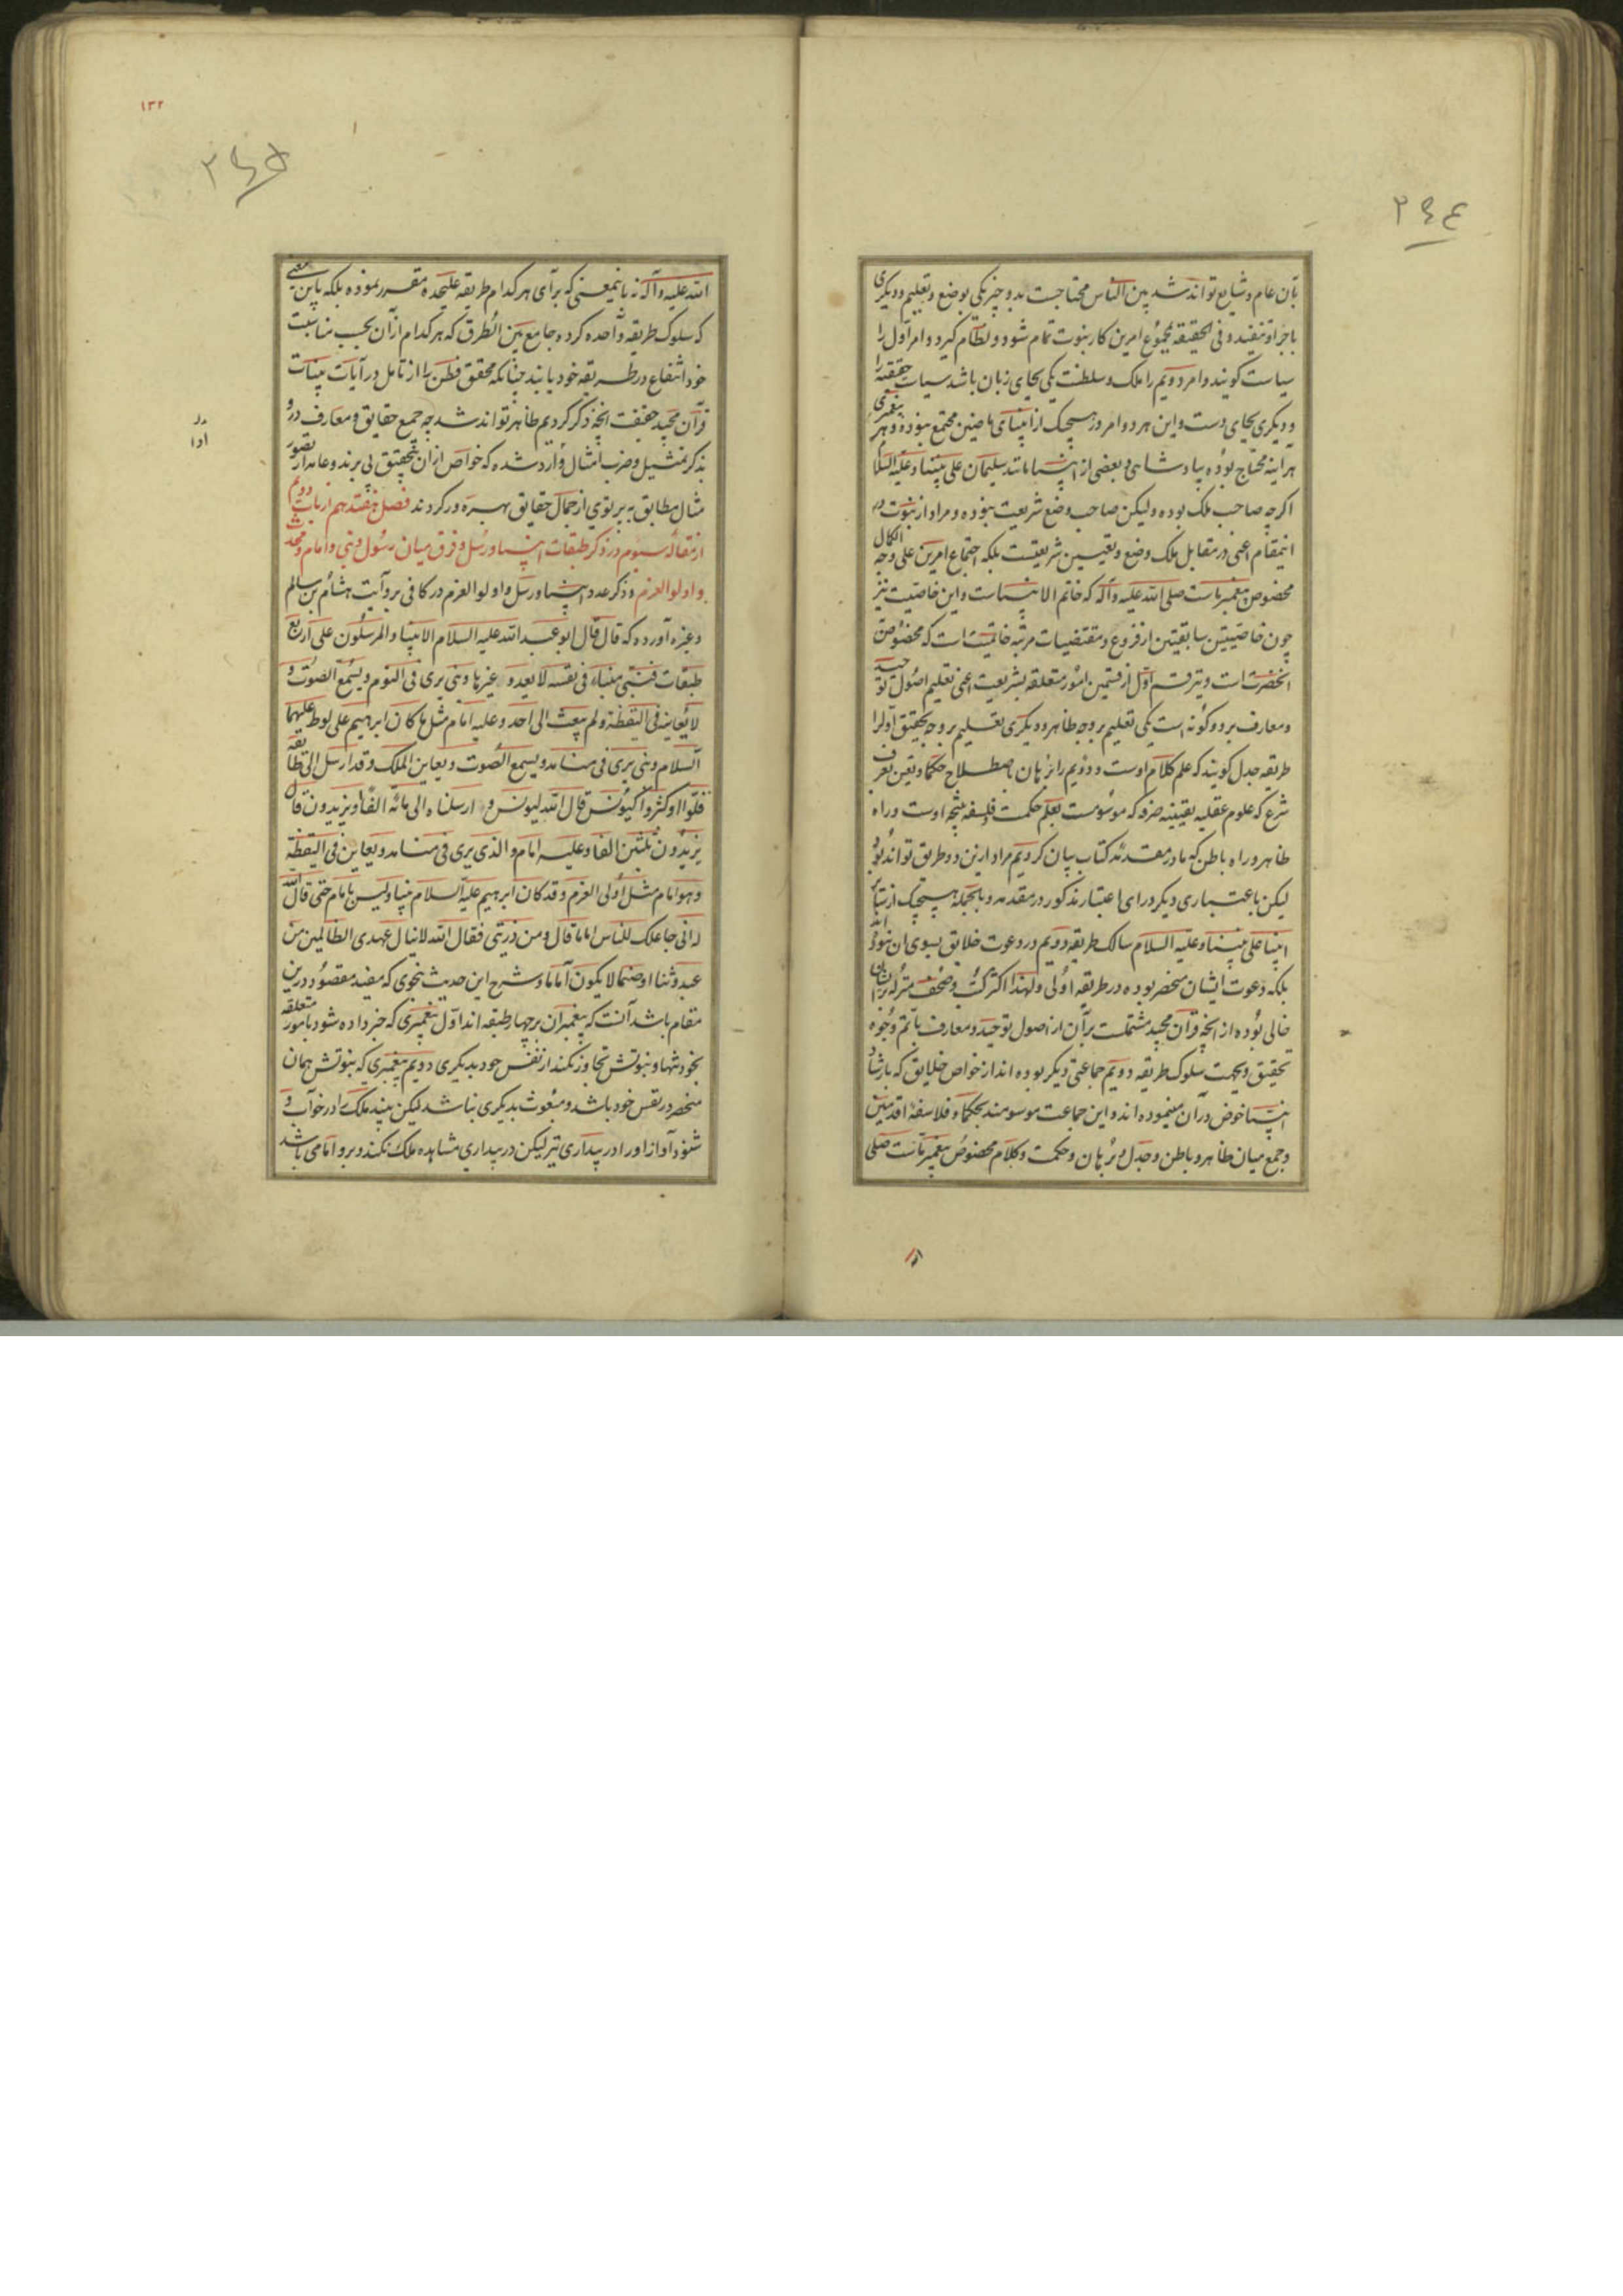 ۲۹۴
بآن عام و شایع تواند شد بین الناس محتاجست بدو چیز یکی بوضع و تعلیم و دیگری
باجرا و تنفیذ و فی الحقیقه مجموع امرین کار نبوت تمام شود و نظام گیرد و امر اول را
سیاست گویند و امر دویم را ملک و سلطنت یکی بجای زبان باشد سیاست حقیقة را
و دیگری بجای دست و این هر دو امر در هیچیک از انبیای ماضین مجتمع نبوده و هر پیغمبری
هر آینه محتاج بوده بپادشاهی و بعضی از انبیا مانند سلیمان علی نبینا و علیه السلام
اگرچه صاحب ملک بوده ولیکن صاحب وضع شریعت نبوده و مراد از نبوت در
اینمقام اعنی در مقابل ملک وضع و تعیین شریعتست بلکه اجتماع امرین علی وجه الکمال
مخصوص پیغمبر ماست صلی الله علیه و آله که خاتم الانبیاست و این خاصیت نیز
چون خاصیتین سابقتین از فروع و مقتضیات مرتبه خاتمیت است که مخصوص
آنحضرت است و نیز قسم اول از قسمین امور متعلقه بشریعت اعنی تعلیم اصول توحید
و معارف بر دو گونه است یکی تعلیم بر وجه ظاهر و دیگری تعلیم بر وجه تحقیق اول را
طریقه جدل گویند که علم کلام اوست و دویم را برهان باصطلاح حکما و یقین بعرف
شرع که علوم عقلیه یقینیه صرفه که موسومست بعلم حکمت و فلسفه نتیجه اوست و راه
ظاهر و راه باطن که ما در مقدمه کتاب بیان کردیم مراد ازین دو طریق تواند بود
لیکن باعتباری دیگر ورای اعتبار مذکور در مقدمه و بالجمله هیچیک از سایر
انبیا علی نبینا و علیه السلام سالک طریقه دویم در دعوت خلایق بسوی آن نبوده‌اند
بلکه دعوت ایشان منحصر بوده در طریقه اولی و لهذا اکثر کتب و صحف منزله بر ایشان
خالی بوده از آنچه قرآن مجید مشتملست بر آن از اصول توحید و معارف باتم وجوه
تحقیق و بجهت سلوک طریقه دویم جماعتی دیگر بوده اند از خواص خلایق که بارشاد
انبیا خوض در آن مینموده اند و این جماعت موسومند بحکما و فلاسفه اقدمین
و جمع میان ظاهر و باطن و جدل و برهان و حکمت و کلام مخصوص پیغمبر ماست صلی
۱۳۲
۲۹۵
الله علیه و آله نه باینمعنی که برای هر کدام طریقه علیحده مقرر نموده بلکه باین معنی
که سلوک طریقه واحده کرده جامع بین الطرق که هر کدام از آن بحسب مناسبت
خود انتفاع در طریقه خود یابند چنانکه محقق فطن را از تامل در آیات بینات
قرآن مجید حقیقت آنچه ذکر کردیم ظاهر تواند شد چه جمیع حقایق و معارف در او
بذکر تمثیل و ضرب امثال وارد شده که خواص از آن بتحقیق پی برند و عامه از تصور
مثال مطابق به پرتوی از جمال حقایق بهره ور گردند فصل هفتدهم از باب دویم
از مقاله سیوم در ذکر طبقات انبیا و رسل و فرق میان رسول و نبی و امام و محدث
و اولو العزم و ذکر عدد انبیا و رسل و اولو العزم در کافی بروایت هشام بن سالم
و غیره آورده که قال قال ابو عبد الله علیه السلام الانبیاء و المرسلون علی اربع
طبقات فنبی منباء فی نفسه لا یعدو غیرها و نبی یری فی النوم و یسمع الصوت و
لا یعاینه فی الیقظة و لم یبعث الی احد و علیه امام مثل ما کان ابراهیم علی لوط علیهما
السلام و نبی یری فی منامه و یسمع الصوت و یعاین الملک و قد ارسل الی طایفة
قلوا او کثروا کیونس قال الله لیونس و ارسلناه الی مائة الف او یزیدون قال
یزیدون ثلثین الفا و علیه امام و الذی یری فی منامه و یعاین فی الیقظة
و هو امام مثل اولی العزم و قد کان ابراهیم علیه السلام نبیا و لیس بامام حتی قال الله
له انی جاعلک للناس اماما قال و من ذریتی فقال الله لا ینال عهدی الظالمین من
عبد وثنا او صنما لا یکون اماما و شرح این حدیث بنحوی که مفید مقصود درین
مقام باشد آنست که پیغمبران بر چهار طبقه اند اول پیغمبری که خبر داده شود بامور متعلقه
بخود تنها و نبوتش تجاوز نکند از نفس خود بدیگری دویم پیغمبری که نبوتش همان
منحصر در نفس خود باشد و مبعوث بدیگری نباشد لیکن ببیند ملک را در خواب و
شنود آواز او را در بیداری نیز لیکن در بیداری مشاهده ملک نکند و بر او امامی باشد